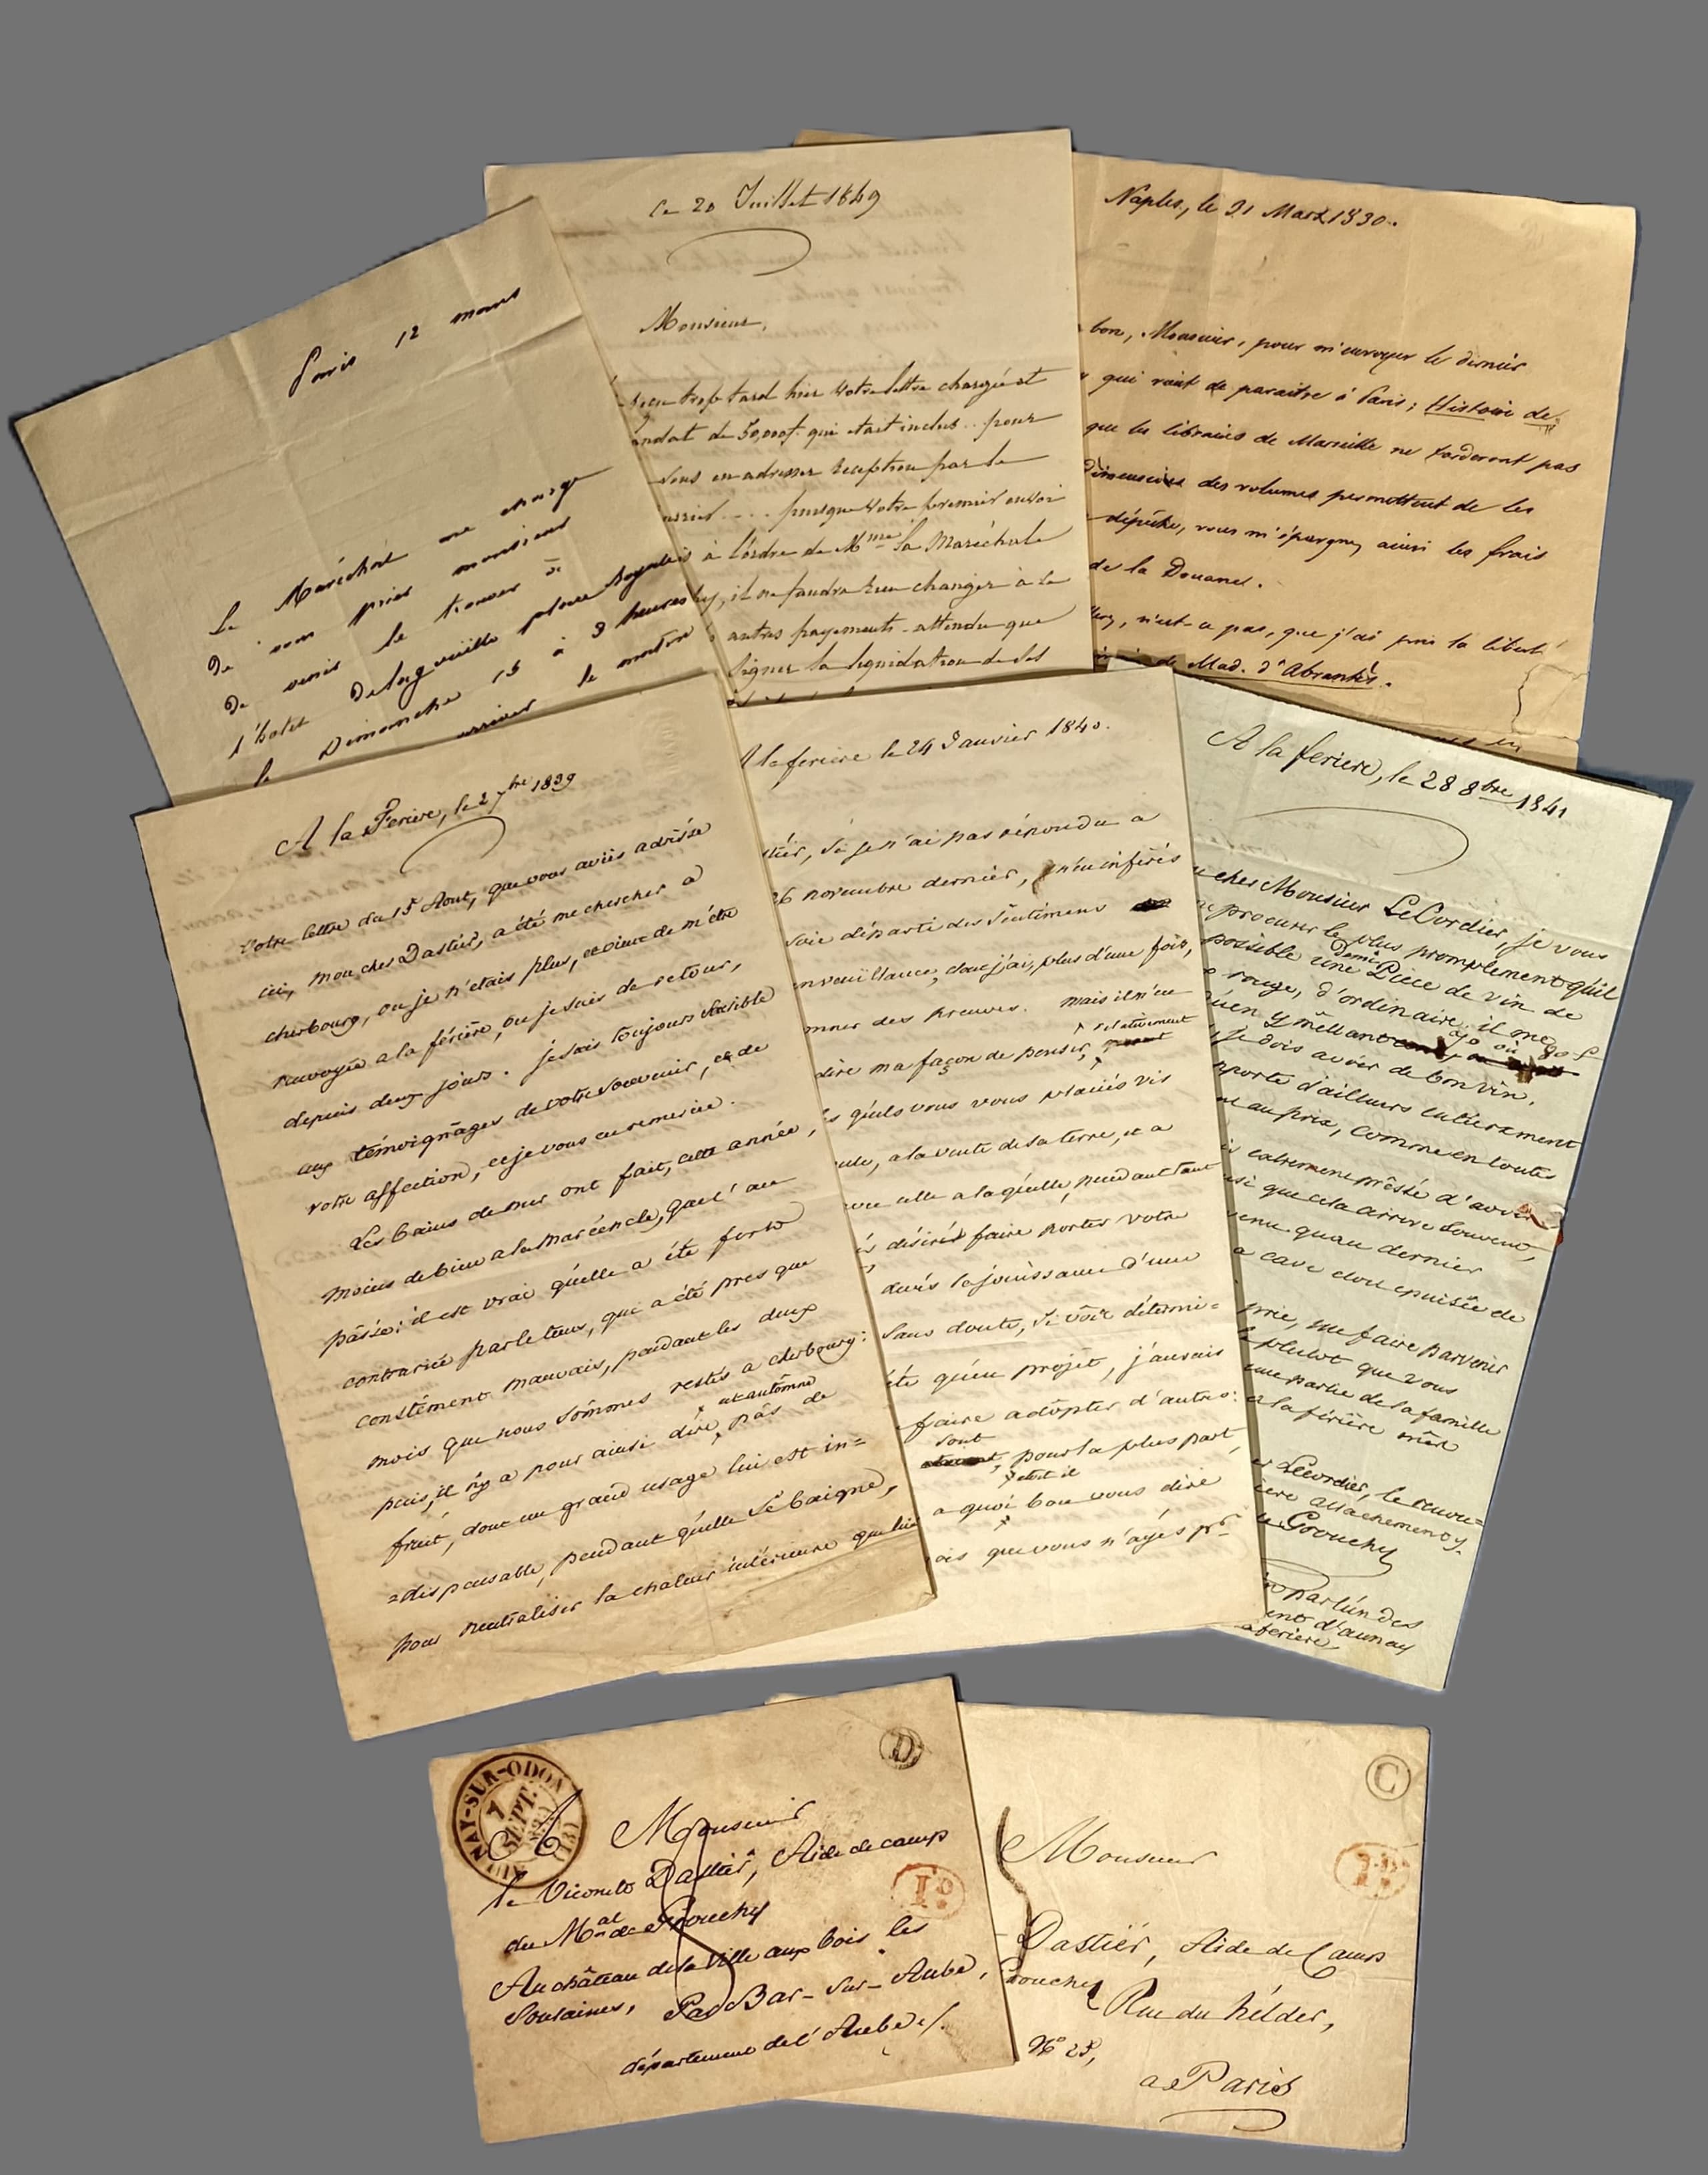 Paris 12 mars
Le Maréchal me charge
de vous prier monsieur
de venir le trouver à
l'hotel place
le Dimanche 15 à 9 heures
arriver le
ce 20 Juillet 1849
Monsieur,
trop tard hier votre lettre chargée et
de 50,000f. qui était inclus .. pour
vous en adresser reception par le
.... puisque votre premier envoi
à l'ordre de Mme la Maréchale
il ne faudra rien changer à la
autres payements - attendu que
signer la liquidation de ses
Naples, le 21 Mars 1830.
bon, Monsieur, pour m'envoyer le dernier
qui vient de paraitre à Paris; Histoire de
que les libraires de Marseille ne tarderont pas
dimensions des volumes permettent de les
dépêche, vous m'épargnez ainsi les frais
de la Douane.
n'est ce pas, que j'ai pris la liberté
de Mad. d'Abrantès.
A la Feriere, le 2 7bre 1839
Votre lettre du 15 Aout, que vous aviés adrésée
ici, mon cher Dastier, a été me chercher a
cherbourg, ou je n'etais plus, et vient de m'être
renvoyée a la férière, ou je suis de retour,
depuis deux jours. je suis toujours sensible
aux témoignages de votre souvenir, et de
votre affection, et je vous en remercie.
Les bains de mer ont fait, cette année,
moins de bien a la maréchale, que l'an
passé: il est vrai qu'elle a été fort
contrariée par le tems, qui a été pres que
constêment mauvais, pendant les deux
mois que nous sommes restés a cherbourg:
puis, il n'y a pour ainsi dire, pas de
cet automne
fruit, dont un grand usage lui est in=
=dispensable, pendant qu'elle se baigne,
pour neutraliser la chaleur intérieure que lui
A la feriere le 24 Janvier 1840.
si je n'ai pas répondu a
26 novembre dernier, n'en inférés
soie départi des sentimens
dont j'ai, plus d'une fois,
des preuves. mais il n'en
dire ma façon de penser, relativement
qu'els vous vous placiés vis
a la vente de sa terre, et a
celle a laquelle, pendant tant
désiré faire porter votre
après la joüissance d'une
sans doute, si votre détermi=
été qu'en projet, j'aurais
faire adopter d'autres:
sont
pour la plus part,
etoit il
a quoi bon vous dire
que vous n'ayés pr
A la feriere, le 28 8bre 1841
cher Monsieur LeCordier, je vous
procurer le plus promptement qu'il
possible une Demi Pièce de vin de
rouge, d'ordinaire. il me
qu'en y mêllant
je dois avoir de bon vin.
d'ailleurs entièrement
au prix, comme en toute
extrement préssé d'avoir
que cela arrive souvent,
qu'au dernier
cave dont epuisée de
prie, me faire parvenir
plutot que vous
une partie de la famille
a la férière
LeCordier, le renou=
attachement
de Grouchy
par l'un des
d'aunay
aferiere
AUNAY-SUR-ODON (13)
7
SEPT.
D
A Monsieur
le Vicomte Dastier, Aide de camp
du Mal de Grouchy
Au château de la Ville aux bois les
Soulaines, Par Bar-sur-Aube,
département de l'Aube
1D
C
Monsieur
1D
Dastier, Aide de Camp
Grouchy
Rue du hélder,
No 25,
a Paris